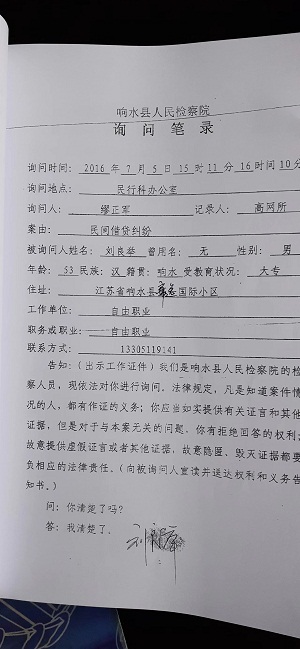 响水县人民检察院
询问笔录
询问时间：2016年7月5日15时11分 16时10分
询问地点：民行科办公室
询问人：缪正军 记录人：高网所
案由：民间借贷纠纷
被询问人姓名：刘良举 曾用名：无 性别：男
年龄：53 民族：汉 籍贯：响水 受教育状况：大专
住址：江苏省响水县 国际小区
工作单位：自由职业
职务或职业：自由职业
联系方式：13305119141
告知：（出示工作证件）我们是响水县人民检察院的检
察人员，现依法对你进行询问。法律规定，凡是知道案件情
况的人，都有作证的义务；你应当如实提供有关证言和其他
证据，但是对于与本案无关的问题，你有拒绝回答的权利；
故意提供虚假证言或者其他证据，故意隐匿、毁灭证据都要
负相应的法律责任。（向被询问人宣读并送达权利和义务告
知书。）
问：你清楚了吗？
答：我清楚了。